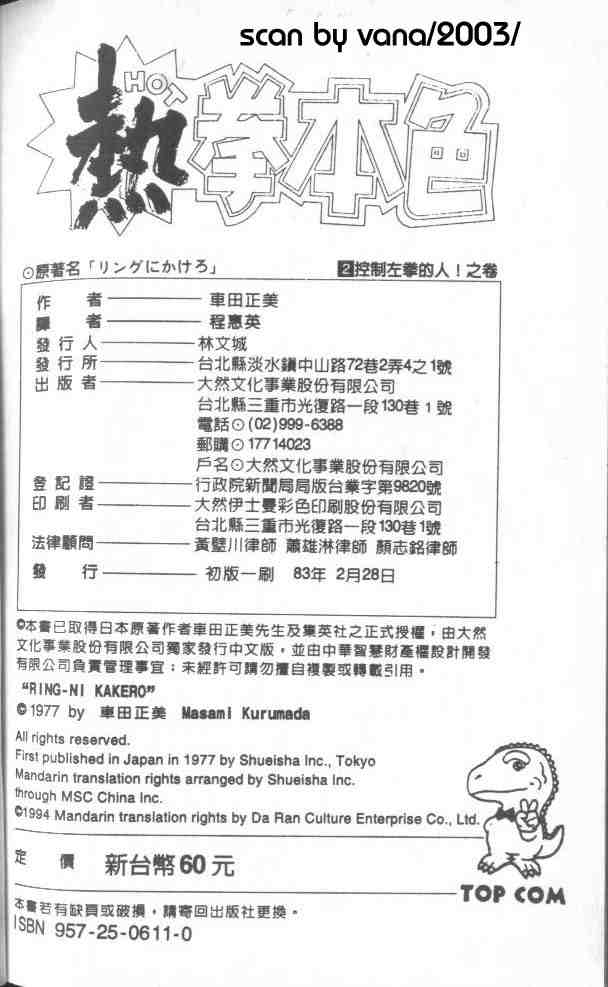 scan by vana/2003/
HOT
熱拳本色
⊙原著名「リングにかけろ」
2控制左拳的人！之卷
作者 車田正美
譯者 程惠英
發行人 林文城
發行所 台北縣淡水鎮中山路72巷2弄4之1號
出版者 大然文化事業股份有限公司
台北縣三重市光復路一段130巷1號
電話⊙(02)999-6388
郵購⊙17714023
戶名⊙大然文化事業股份有限公司
登記證 行政院新聞局局版台業字第9820號
印刷者 大然伊士曼彩色印刷股份有限公司
台北縣三重市光復路一段130巷1號
法律顧問 黃壁川律師 蕭雄淋律師 顏志銘律師
發行 初版一刷 83年 2月28日
©本書已取得日本原著作者車田正美先生及集英社之正式授權，由大然
文化事業股份有限公司獨家發行中文版，並由中華智慧財產權設計開發
有限公司負責管理事宜；未經許可請勿擅自複製或轉載引用。
"RING-NI KAKERO"
©1977 by 車田正美 Masami Kurumada
All rights reserved.
First published in Japan in 1977 by Shueisha Inc., Tokyo
Mandarin translation rights arranged by Shueisha Inc.
through MSC China Inc.
©1994 Mandarin translation rights by Da Ran Culture Enterprise Co., Ltd.
定價 新台幣60元
TOP COM
本書若有缺頁或破損，請寄回出版社更換。
ISBN 957-25-0611-0